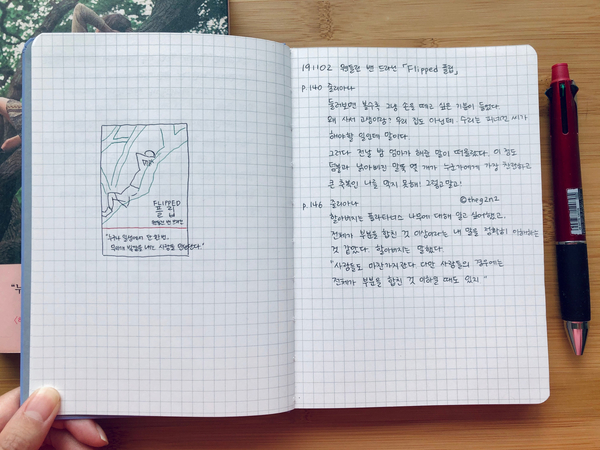 FLIPPED
플립
웬들린 밴 드라넌
"누구나 일생에서 단 한번,
무지개 빛깔을 내는 사람을 만난단다."
191102 웬들린 밴 드라넌 「Flipped 플립」
p.140 줄리아나
둘러보면 볼수록 그냥 손을 떼고 싶은 기분이 들었다.
왜 사서 고생이람? 우리 집도 아닌데. 수리는 피네건 씨가
해야할 일인데 말이다.
그러다 전날 밤 엄마가 해준 말이 떠올랐다. 이 집도
덤불과 낡아빠진 말뚝 몇 개가 누군가에게 가장 친절하고
큰 축복인 나를 막지 못해! 그렇고말고!
©theg2n2
p.146 줄리아나
할아버지는 플라타너스 나무에 대해 알고 싶어했고,
전체가 부분을 합친 것 이상이라는 내 말을 정확히 이해하는
것 같았다. 할아버지는 말했다.
"사람들도 마찬가지란다. 다만 사람들의 경우에는
전체가 부분을 합친 것 이하일 때도 있지."
"누